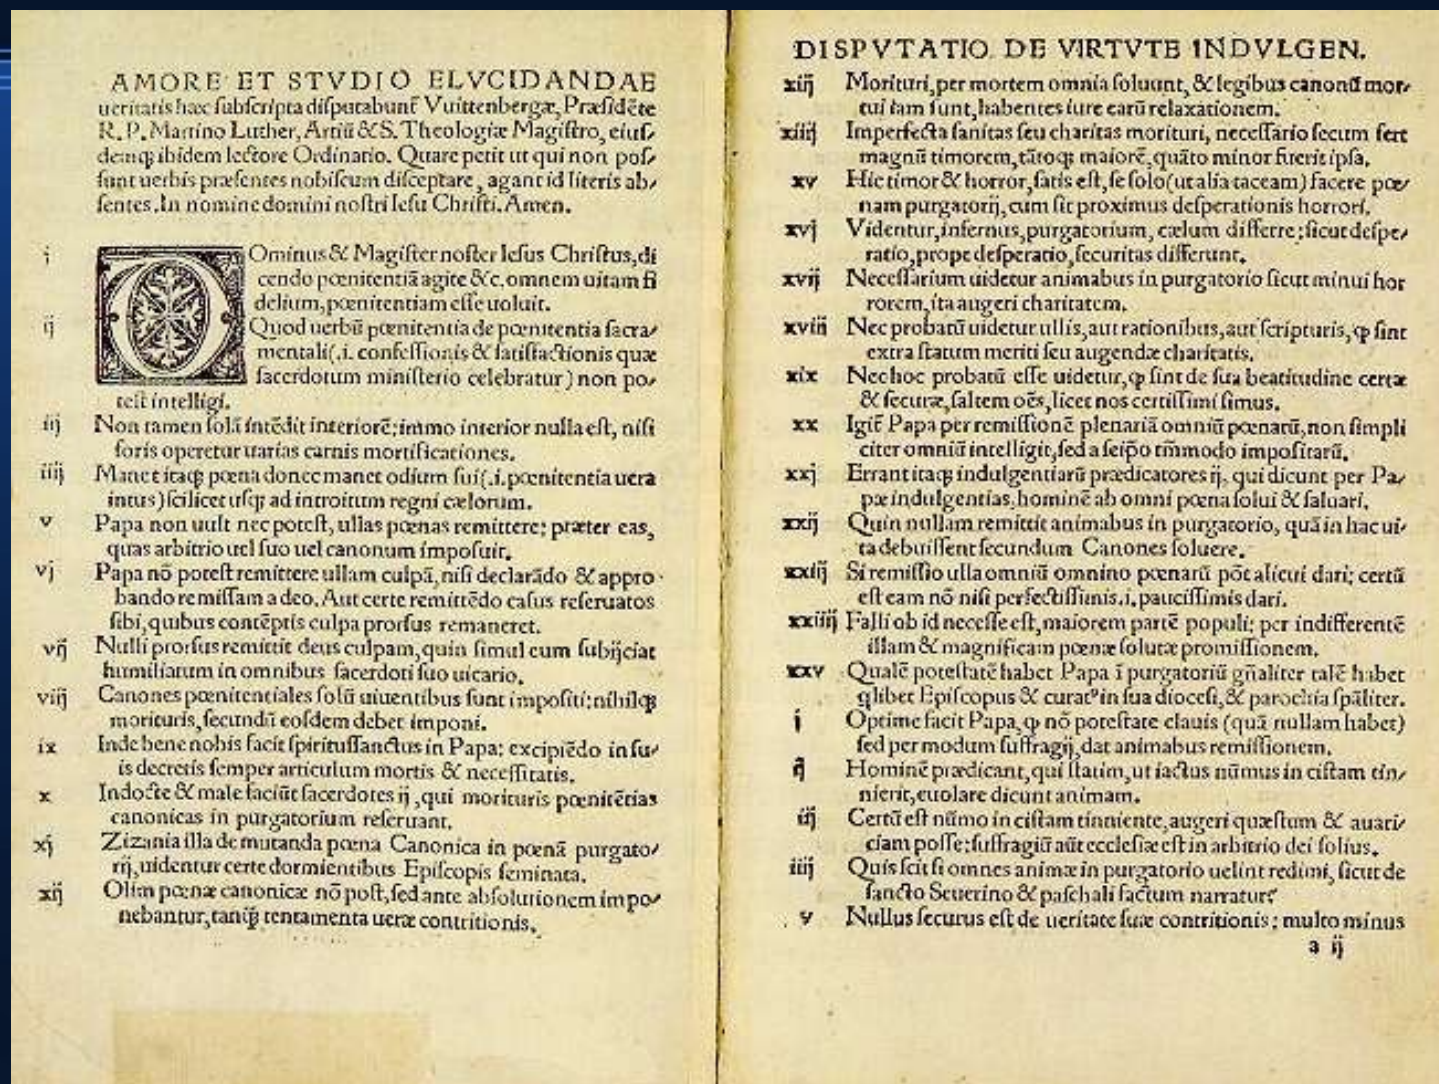 AMORE ET STVDIO ELVCIDANDAE
ueritatis hæc ſubſcripta diſputabunt̃ Vuittenbergæ, Præſidẽte
R. P. Martino Luther, Artiũ & S. Theologiæ Magiſtro, eiuſ⸗
demꝙ ibidem lectore Ordinario. Quare petit ut qui non poſ⸗
ſunt uerbis præſentes nobiſcum diſceptare, agant id literis ab⸗
ſentes. In nomine domini noſtri Ieſu Chriſti. Amen.
i DOminus & Magiſter noſter Ieſus Chriſtus, di
cendo pœnitentiã agite &c. omnem uitam fi
delium, pœnitentiam eſſe uoluit.
ij Quod uerbũ pœnitentia de pœnitentia ſacra⸗
mentali (.i. confeſſionis & ſatiſfactionis quæ
ſacerdotum miniſterio celebratur) non po⸗
teſt intelligi.
iij Non tamen ſolã intẽdit interiorẽ: immo interior nulla eſt, niſi
foris operetur uarias carnis mortificationes.
iiij Manet itaꝙ pœna donec manet odium ſui (.i. pœnitentia uera
intus) ſcilicet uſꝙ ad introitum regni cælorum.
v Papa non uult nec poteſt, ullas pœnas remittere: præter eas,
quas arbitrio uel ſuo uel canonum impoſuit.
vj Papa nõ poteſt remittere ullam culpã, niſi declarãdo & appro⸗
bando remiſſam a deo. Aut certe remittẽdo caſus reſeruatos
ſibi, quibus contẽptis culpa prorſus remaneret.
vij Nulli prorſus remittit deus culpam, quin ſimul eum ſubijciat
humiliatum in omnibus ſacerdoti ſuo uicario.
viij Canones pœnitentiales ſolũ uiuentibus ſunt impoſiti: nihilꝙ
morituris, ſecundũ eoſdem debet imponi.
ix Inde bene nobis facit ſpirituſſanctus in Papa: excipiẽdo in ſu⸗
is decretis ſemper articulum mortis & neceſſitatis.
x Indocte & male faciũt ſacerdotes ij, qui morituris pœnitẽtias
canonicas in purgatorium reſeruant.
xj Zizania illa de mutanda pœna Canonica in pœnã purgato⸗
rij, uidentur certe dormientibus Epiſcopis ſeminata.
xij Olim pœnæ canonicæ nõ poſt, ſed ante abſolutionem impo⸗
nebantur, tanꝙ̃ tentamenta ueræ contritionis.
DISPVTATIO DE VIRTVTE INDVLGEN.
xiij Morituri, per mortem omnia ſoluunt, & legibus canonũ mor⸗
tui iam ſunt, habentes iure earũ relaxationem.
xiiij Imperfecta ſanitas ſeu charitas morituri, neceſſario ſecum fert
magnũ timorem, tãtoꝙ maiorẽ, quãto minor fuerit ipſa.
xv Hic timor & horror, ſatis eſt, ſe ſolo (ut alia taceam) facere pœ⸗
nam purgatorij, cum ſit proximus deſperationis horrori.
xvj Videntur, infernus, purgatorium, cælum differre: ſicut deſpe⸗
ratio, prope deſperatio, ſecuritas differunt.
xvij Neceſſarium uidetur animabus in purgatorio ſicut minui hor
rorem, ita augeri charitatem.
xviij Nec probatũ uidetur ullis, aut rationibus, aut ſcripturis, ꝙ ſint
extra ſtatum meriti ſeu augendæ charitatis.
xix Nec hoc probatũ eſſe uidetur, ꝙ ſint de ſua beatitudine certæ
& ſecuræ, ſaltem oẽs, licet nos certiſſimi ſimus.
xx Igit̃ Papa per remiſſionẽ plenariã omniũ pœnarũ, non ſimpli
citer omniũ intelligit, ſed a ſeip̃o tm̃modo impoſitarũ.
xxj Errant itaꝙ indulgentiarũ prædicatores ij, qui dicunt per Pa⸗
pæ indulgentias, hominẽ ab omni pœna ſolui & ſaluari.
xxij Quin nullam remittit animabus in purgatorio, quã in hac ui⸗
ta debuiſſent ſecundum Canones ſoluere.
xxiij Si remiſſio ulla omniũ omnino pœnarũ põt alicui dari: certũ
eſt eam nõ niſi perfectiſſimis .i. pauciſſimis dari.
xxiiij Falli ob id neceſſe eſt, maiorem partẽ populi: per indifferentẽ
illam & magnificam pœnæ ſolutæ promiſſionem.
xxv Qualẽ poteſtatẽ habet Papa ĩ purgatoriũ gñaliter talẽ habet
qlibet Epiſcopus & curatꝰ in ſua dioceſi, & parochia ſpãliter.
i Optime facit Papa, ꝙ nõ poteſtate clauis (quã nullam habet)
ſed per modum ſuffragij, dat animabus remiſſionem.
ij Hominẽ prædicant, qui ſtatim, ut iactus nũmus in ciſtam tin⸗
nierit, euolare dicunt animam.
iij Certũ eſt nũmo in ciſtam tinniente, augeri quæſtum & auari⸗
ciam poſſe: ſuffragiũ aũt eccleſiæ eſt in arbitrio dei ſolius.
iiij Quis ſcit ſi omnes animæ in purgatorio uelint redimi, ſicut de
ſancto Seuerino & paſchali factum narratur?
v Nullus ſecurus eſt de ueritate ſuæ contritionis: multo minus
a ij